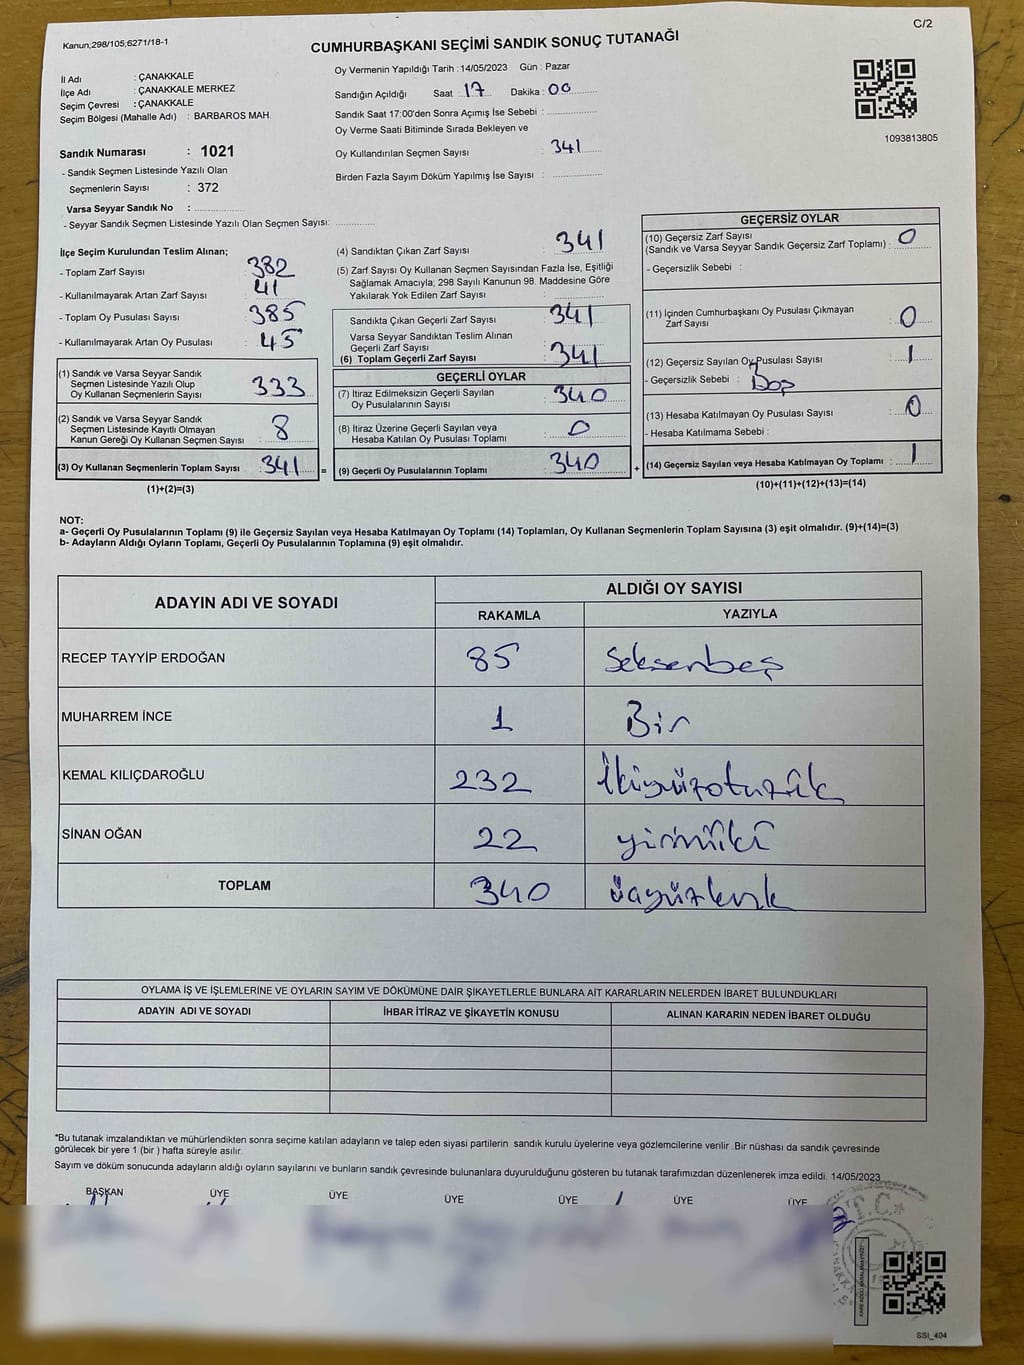 C/2
Kanun;298/105;6271/18-1
CUMHURBAŞKANI SEÇİMİ SANDIK SONUÇ TUTANAĞI
İl Adı : ÇANAKKALE
İlçe Adı : ÇANAKKALE MERKEZ
Seçim Çevresi : ÇANAKKALE
Seçim Bölgesi (Mahalle Adı) : BARBAROS MAH.
Oy Vermenin Yapıldığı Tarih : 14/05/2023 Gün : Pazar
Sandığın Açıldığı Saat : 17 Dakika : 00
Sandık Saat 17:00'den Sonra Açımış İse Sebebi :
Oy Verme Saati Bitiminde Sırada Bekleyen ve
Oy Kullandırılan Seçmen Sayısı : 341
Birden Fazla Sayım Döküm Yapılmış İse Sayısı :
1093813805
Sandık Numarası : 1021
- Sandık Seçmen Listesinde Yazılı Olan
Seçmenlerin Sayısı : 372
Varsa Seyyar Sandık No :
- Seyyar Sandık Seçmen Listesinde Yazılı Olan Seçmen Sayısı:
İlçe Seçim Kurulundan Teslim Alınan;
- Toplam Zarf Sayısı 382
- Kullanılmayarak Artan Zarf Sayısı 41
- Toplam Oy Pusulası Sayısı 385
- Kullanılmayarak Artan Oy Pusulası 45
(1) Sandık ve Varsa Seyyar Sandık
Seçmen Listesinde Yazılı Olup
Oy Kullanan Seçmenlerin Sayısı 333
(2) Sandık ve Varsa Seyyar Sandık
Seçmen Listesinde Kayıtlı Olmayan
Kanun Gereği Oy Kullanan Seçmen Sayısı 8
(3) Oy Kullanan Seçmenlerin Toplam Sayısı : 341 =
(1)+(2)=(3)
(4) Sandıktan Çıkan Zarf Sayısı : 341
(5) Zarf Sayısı Oy Kullanan Seçmen Sayısından Fazla İse, Eşitliği
Sağlamak Amacıyla; 298 Sayılı Kanunun 98. Maddesine Göre
Yakılarak Yok Edilen Zarf Sayısı :
Sandıkta Çıkan Geçerli Zarf Sayısı : 341
Varsa Seyyar Sandıktan Teslim Alınan
Geçerli Zarf Sayısı
(6) Toplam Geçerli Zarf Sayısı : 341
GEÇERLİ OYLAR
(7) İtiraz Edilmeksizin Geçerli Sayılan
Oy Pusulalarının Sayısı : 340
(8) İtiraz Üzerine Geçerli Sayılan veya
Hesaba Katılan Oy Pusulası Toplamı : 0
(9) Geçerli Oy Pusulalarının Toplamı : 340 +
GEÇERSİZ OYLAR
(10) Geçersiz Zarf Sayısı
(Sandık ve Varsa Seyyar Sandık Geçersiz Zarf Toplamı) : 0
- Geçersizlik Sebebi :
(11) İçinden Cumhurbaşkanı Oy Pusulası Çıkmayan
Zarf Sayısı : 0
(12) Geçersiz Sayılan Oy Pusulası Sayısı : 1
- Geçersizlik Sebebi : Boş
(13) Hesaba Katılmayan Oy Pusulası Sayısı : 0
- Hesaba Katılmama Sebebi :
(14) Geçersiz Sayılan veya Hesaba Katılmayan Oy Toplamı : 1
(10)+(11)+(12)+(13)=(14)
NOT:
a- Geçerli Oy Pusulalarının Toplamı (9) ile Geçersiz Sayılan veya Hesaba Katılmayan Oy Toplamı (14) Toplamları, Oy Kullanan Seçmenlerin Toplam Sayısına (3) eşit olmalıdır. (9)+(14)=(3)
b- Adayların Aldığı Oyların Toplamı, Geçerli Oy Pusulalarının Toplamına (9) eşit olmalıdır.
ADAYIN ADI VE SOYADI ALDIĞI OY SAYISI
RAKAMLA YAZIYLA
RECEP TAYYİP ERDOĞAN 85 Seksenbeş
MUHARREM İNCE 1 Bir
KEMAL KILIÇDAROĞLU 232 İkiyüzotuziki
SİNAN OĞAN 22 yirmiiki
TOPLAM 340 üçyüzkırk
OYLAMA İŞ VE İŞLEMLERİNE VE OYLARIN SAYIM VE DÖKÜMÜNE DAİR ŞİKAYETLERLE BUNLARA AİT KARARLARIN NELERDEN İBARET BULUNDUKLARI
ADAYIN ADI VE SOYADI İHBAR İTİRAZ VE ŞİKAYETİN KONUSU ALINAN KARARIN NEDEN İBARET OLDUĞU
*Bu tutanak imzalandıktan ve mühürlendikten sonra seçime katılan adayların ve talep eden siyasi partilerin sandık kurulu üyelerine veya gözlemcilerine verilir .Bir nüshası da sandık çevresinde
görülecek bir yere 1 (bir ) hafta süreyle asılır.
Sayım ve döküm sonucunda adayların aldığı oyların sayılarını ve bunların sandık çevresinde bulunanlara duyurulduğunu gösteren bu tutanak tarafımızdan düzenlenerek imza edildi. 14/05/2023
BAŞKAN ÜYE ÜYE ÜYE ÜYE ÜYE ÜYE
T.C.
SSİ_404